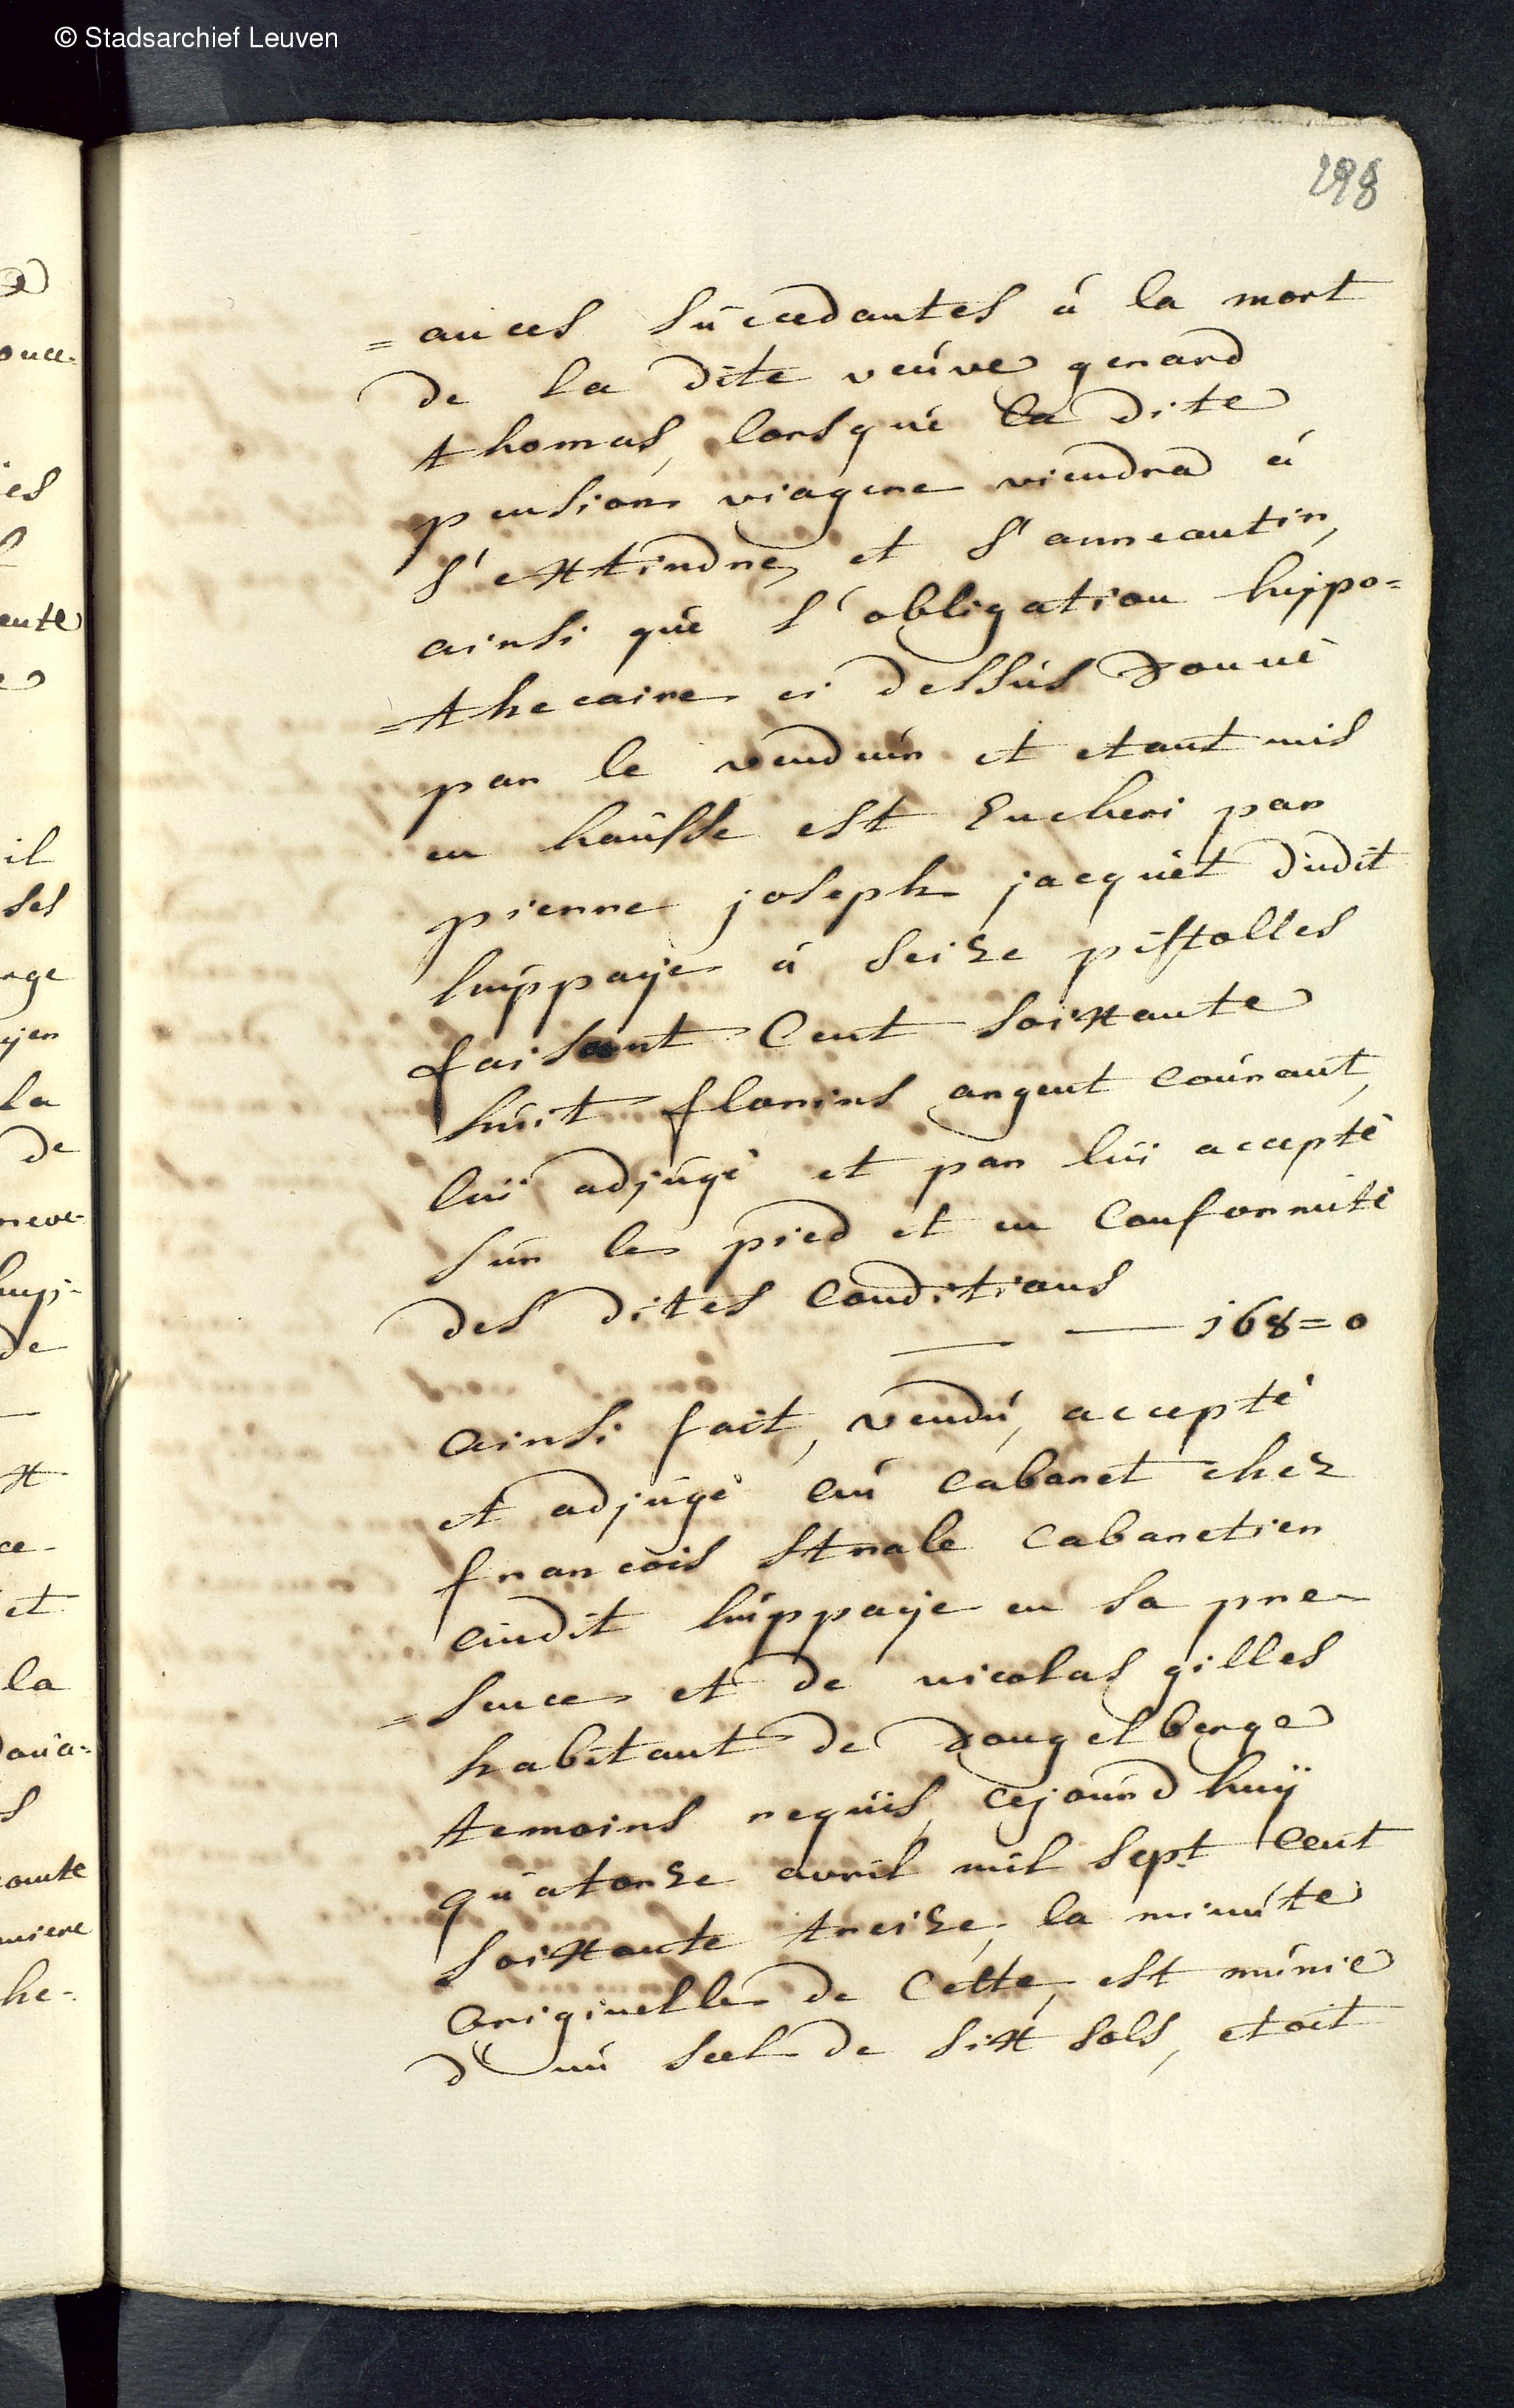 © Stadsarchief Leuven
298
=ances súccedantes á la mort
de la dite veúve gerard
thomas, lorsque la dite
pension viagere viendra á
s'extindre, et s'anneantir,
ainsi que l'obligation hypo=
=thecaire ci dessús donné
par le vendeúr et etant mis
en haússe est Encheri par
pierre joseph jacquét dúdit
húppaye á seize pistolles
faisant Cent soixante
húit florins argent coúrant,
lúi adjúgé et par lúi accepté
súr le pied et en Conformité
des dites Conditions
— — 168=0
ainsi fait, vendú, accepté
et adjúgé aú Cabaret chez
francois strale Cabaretier
aúdit húppaye en sa pre-
=sence et de nicolas gilles
habitant de dongelberge
temoins reqúis, cejoúrd huÿ
qúatorze avril mil sept Cent
soixante treize, la minúte
originelle de Cétte, est múnie
d'ún seel de six sols, etoit